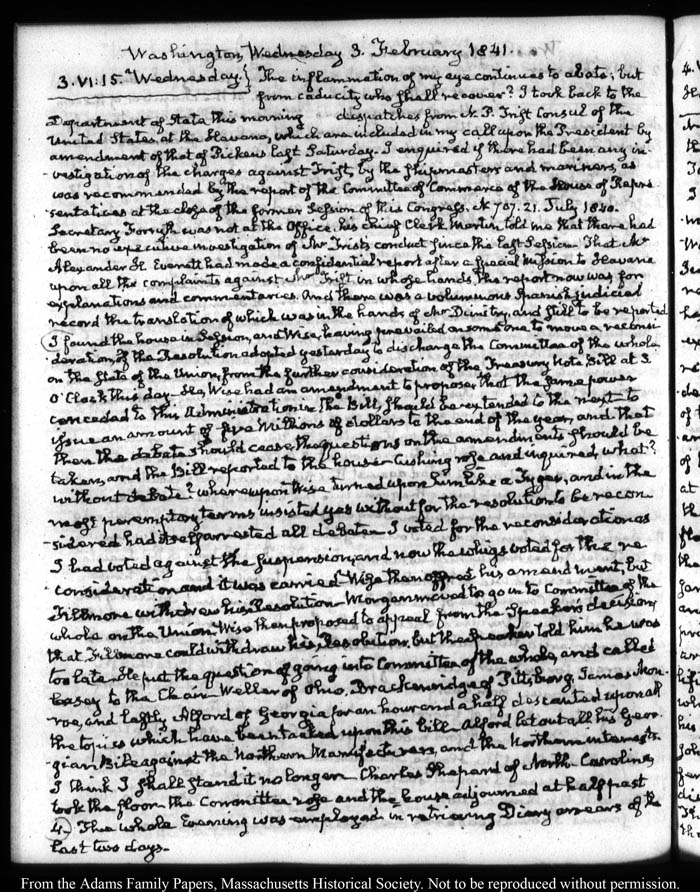 Washington, Wednesday 3. February 1841.
3. VI:15. Wednesday.} The inflammation of my eye continues to abate; but
from caducity who shall recover? I took back to the
Department of State this morning dispatches from N. P. Trist Consul of the
United States, at the Havana, which are included in my call upon the President by
amendment of that of Pickens last Saturday. I enquired if there had been any in-
vestigation of the charges against Trist, by the shipmasters and mariners, as
was recommended by the report of the Committee of Commerce of the House of Repre
sentatives at the close of the former Session of this Congress. N. 707. 21. July 1840.
Secretary Forsyth was not at the Office. his chief Clerk Martin told me that there had
been no executive investigation of Mr Trist's conduct since the last Session. That Mr
Alexander H. Everett had made a confidential report after a special mission to Havana
upon all the complaints against Mr Trist in whose hands, the report now was for
explanations and commentaries. And there was a voluminous Spanish judicial
record the translation of which was in the hands of Mr Dimitry, and still to be reported
I found the house in Session, and Wise, having prevailed on some one to move a reconsi
deration, of the Resolution adopted yesterday to discharge the Committee of the whole
on the State of the Union, from the further consideration of the Treasury Note Bill at 3.
O'Clock this day. He, Wise had an amendment to propose, that the same power
conceded to this Administration in the Bill, should be extended to the next to
issue an amount of five Millions of dollars to the end of the year, and that
then the debate should cease, the questions on the amendments should be
taken, and the Bill reported to the house. Cushing rose and inquired, what?
without debate? whereupon Wise turned upon him like a Tyger, and in the
most peremptory terms insisted yes without for the resolution to be recon
sidered had itself arrested all debate. I voted for the reconsideration as
I had voted against the suspension, and now the whigs voted for the re
consideration and it was carried. Wise then offered his amendment, but
Fillmore withdrew his Resolution. Morgan moved to go into Committee of the
whole on the Union. Wise then proposed to appeal from the Speaker's decision,
that Fillmore could withdraw his Resolution, but the Speaker told him he was
too late. He put the question of going into Committee of the whole, and called
Casey to the Chair. Weller of Ohio, Brackenridge of Pittsburg, James Mon-
roe, and lastly Alford of Georgia for an hour and a half descanted upon all
the topics which have been tacked upon this bill. Alford let out all his Geor-
gian Bile against the Northern Manufacturers, and the Northern interests.
I think I shall stand it no longer. Charles Shepard of North Carolina,
took the floor. the Committee rose and the house adjourned at half past
4. The whole Evening was employed in retrieving Diary arrears of the
last two days.
From the Adams Family Papers, Massachusetts Historical Society. Not to be reproduced without permission.